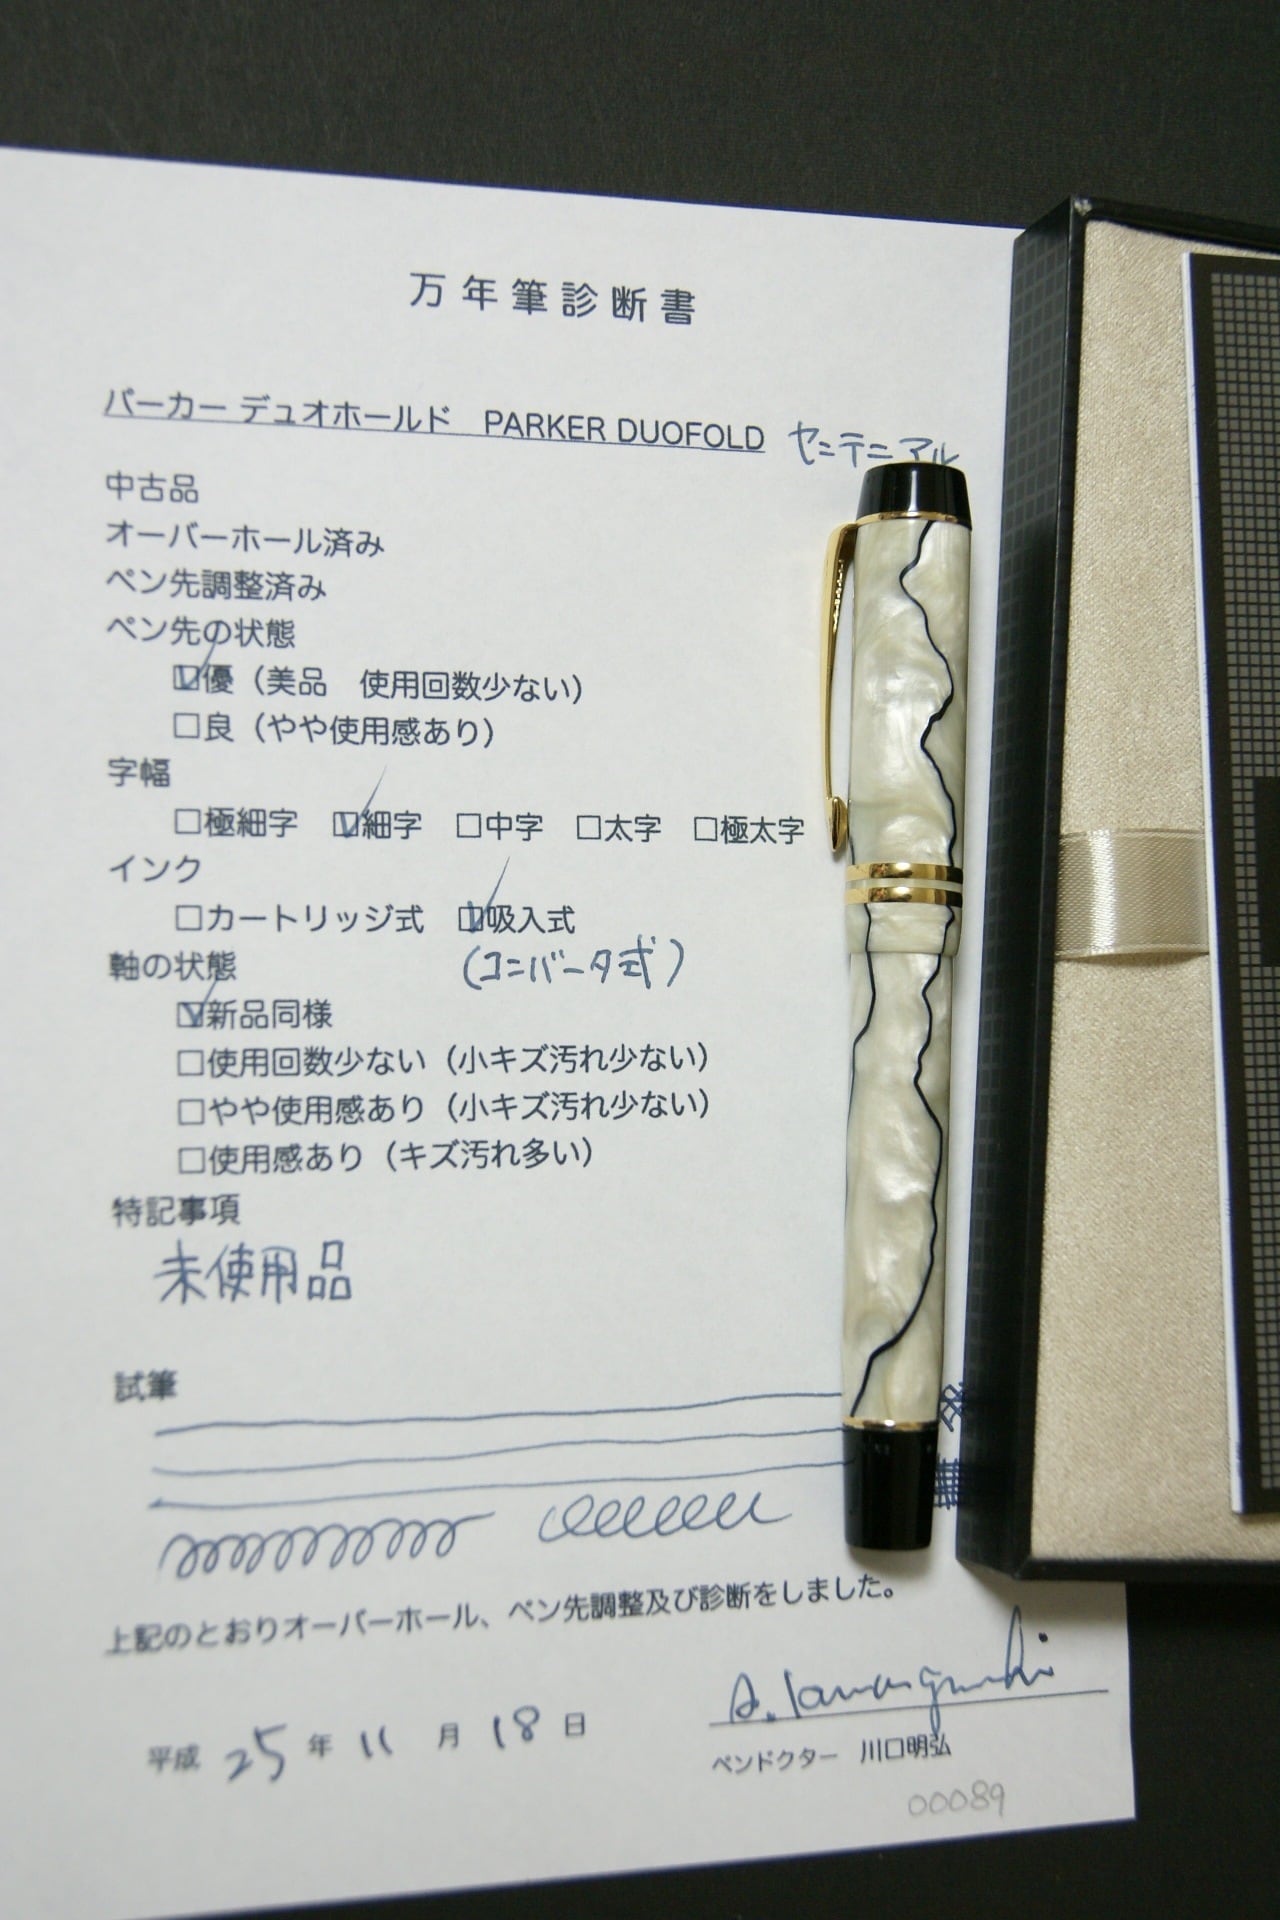 万年筆診断書
パーカー デュオホールド PARKER DUOFOLD センテニアル
中古品
オーバーホール済み
ペン先調整済み
ペン先の状態
☑優（美品 使用回数少ない）
□良（やや使用感あり）
字幅
□極細字 ☑細字 □中字 □太字 □極太字
インク
□カートリッジ式 ☑吸入式
（コンバータ式）
軸の状態
☑新品同様
□使用回数少ない（小キズ汚れ少ない）
□やや使用感あり（小キズ汚れ少ない）
□使用感あり（キズ汚れ多い）
特記事項
未使用品
試筆
上記のとおりオーバーホール、ペン先調整及び診断をしました。
A. Kawaguchi
平成 25 年 11 月 18 日
ペンドクター 川口明弘
00089